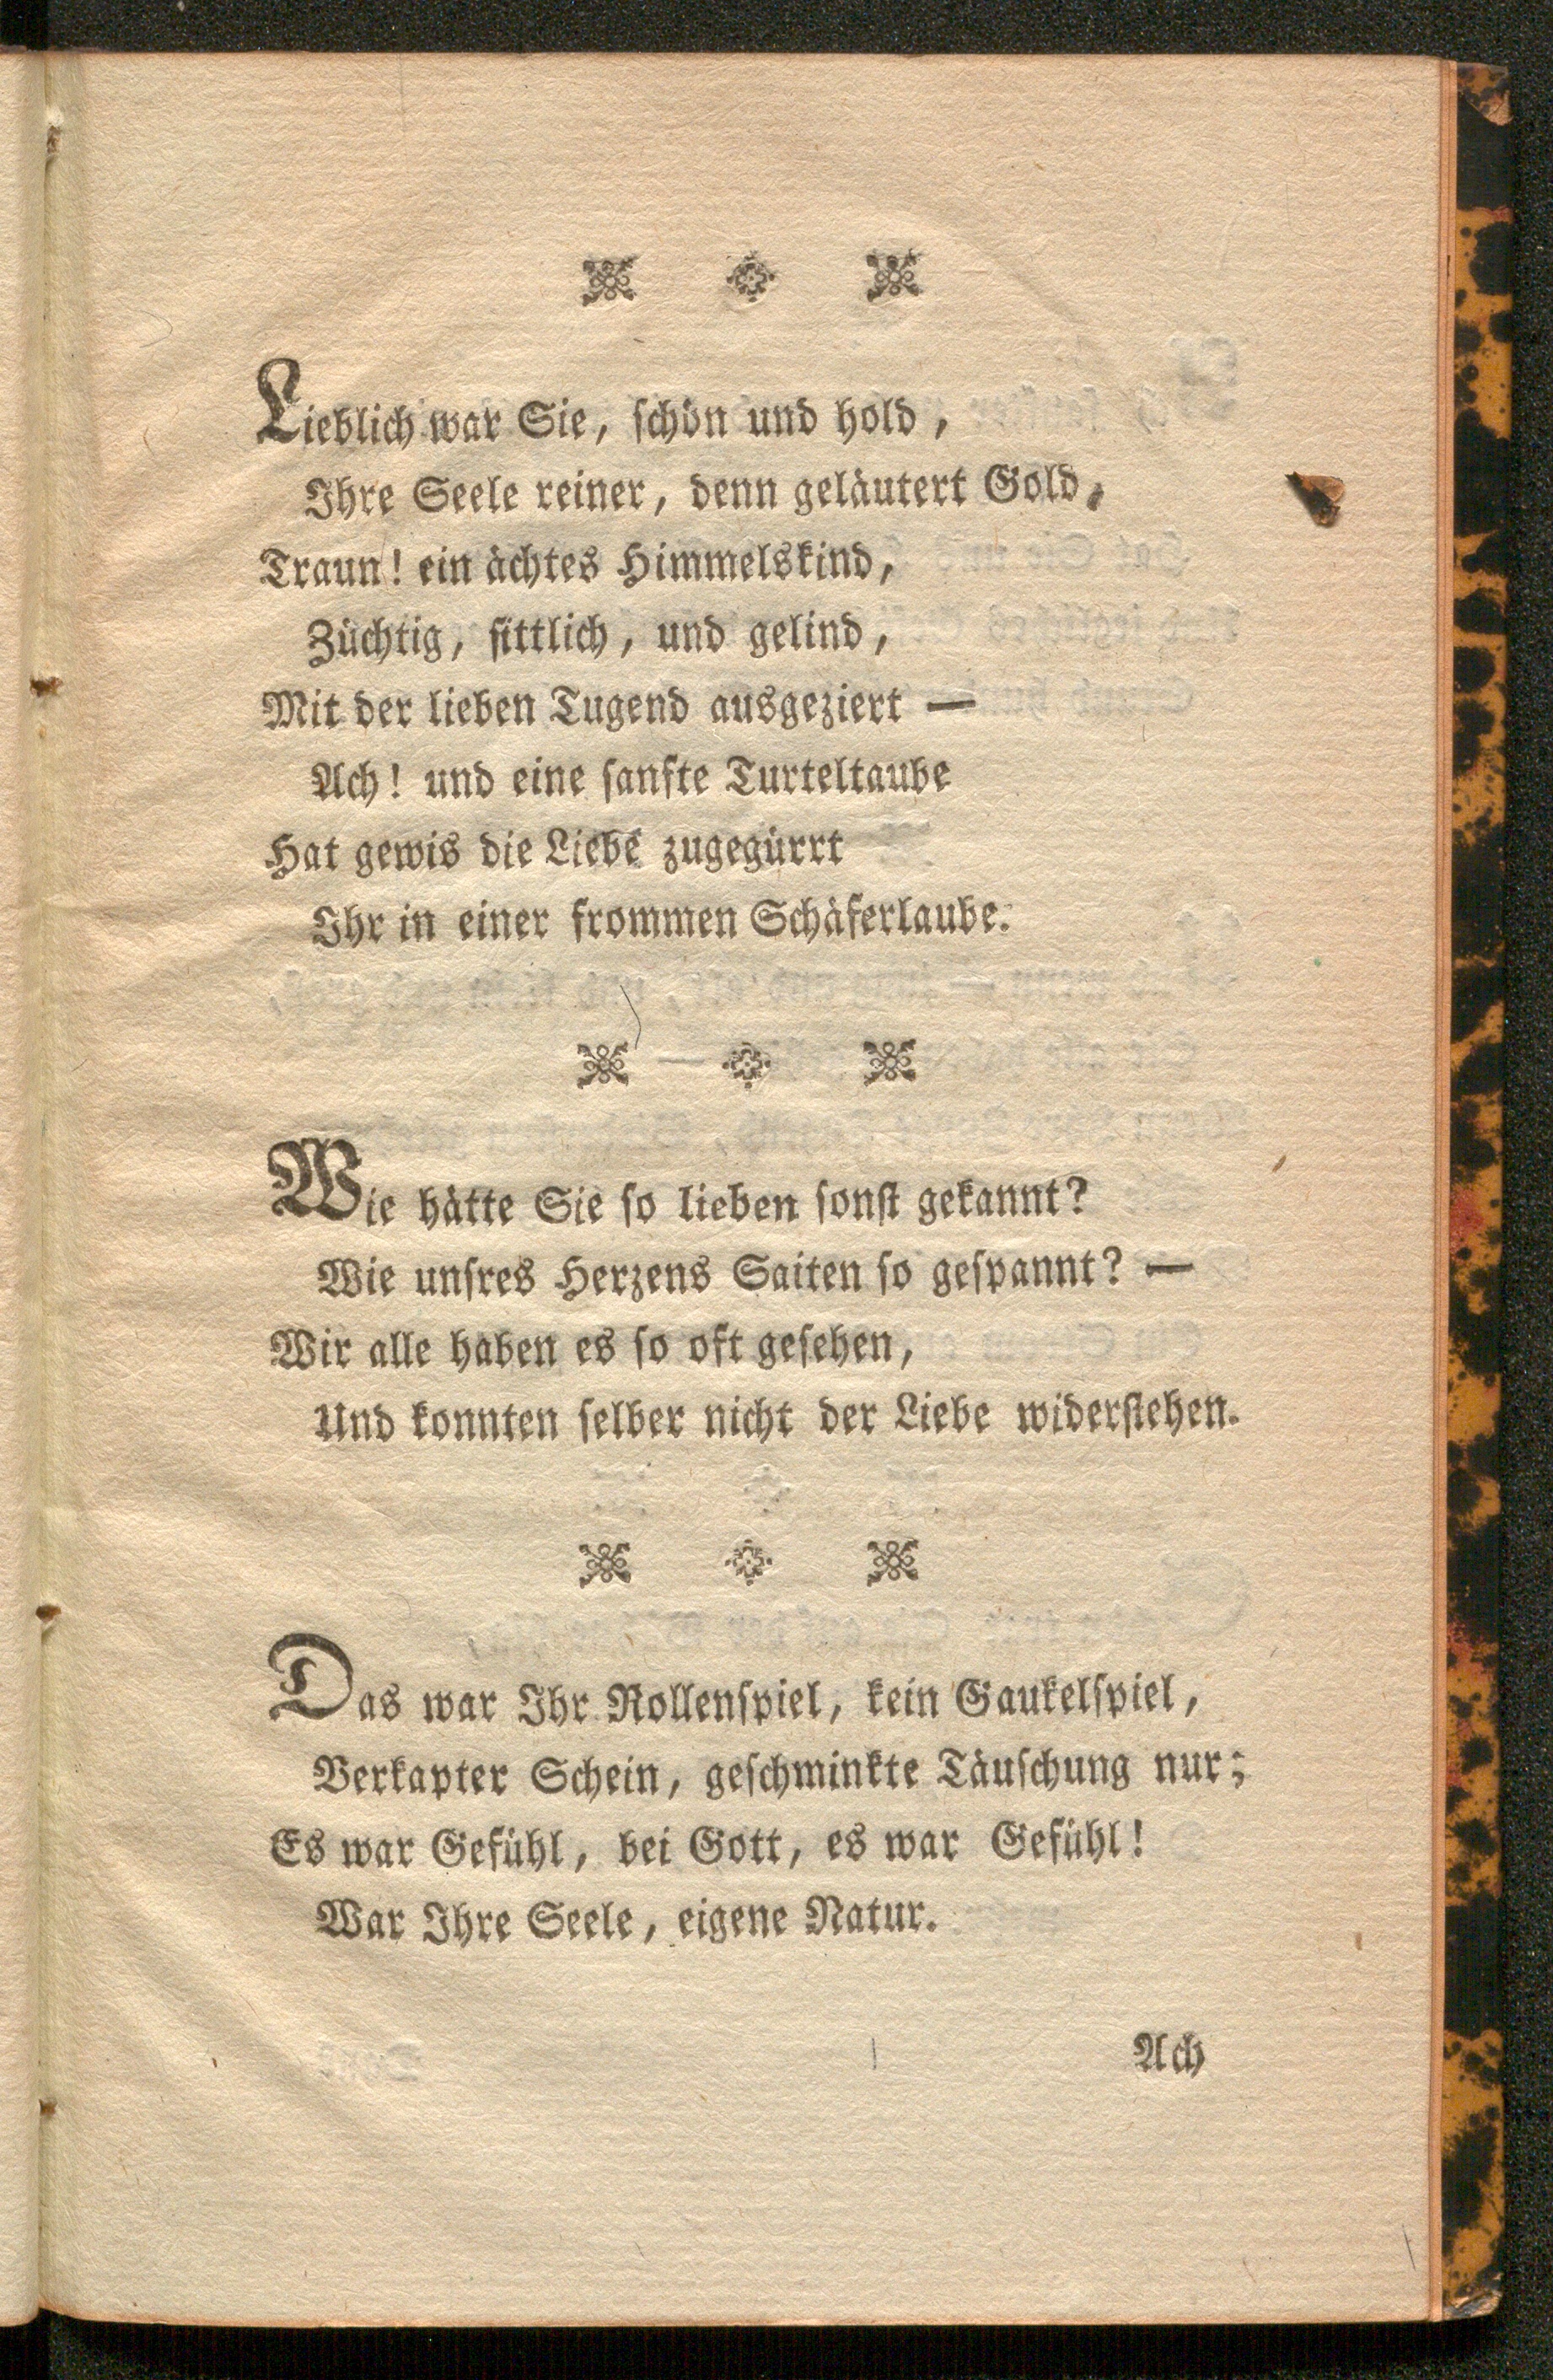 Lieblich war Sie, schön und hold,
Ihre Seele reiner, denn geläutert Gold,
Traun! ein ächtes Himmelskind,
Züchtig, sittlich, und gelind,
Mit der lieben Tugend ausgeziert —
Ach! und eine sanfte Turteltaube
Hat gewis die Liebe zugegürrt
Ihr in einer frommen Schäferlaube.
Wie hätte Sie so lieben sonst gekannt?
Wie unsres Herzens Saiten so gespannt? —
Wir alle haben es so oft gesehen,
Und konnten selber nicht der Liebe widerstehen.
Das war Ihr Rollenspiel, kein Gaukelspiel,
Verkapter Schein, geschminkte Täuschung nur;
Es war Gefühl, bei Gott, es war Gefühl!
War Ihre Seele, eigene Natur.
Ach